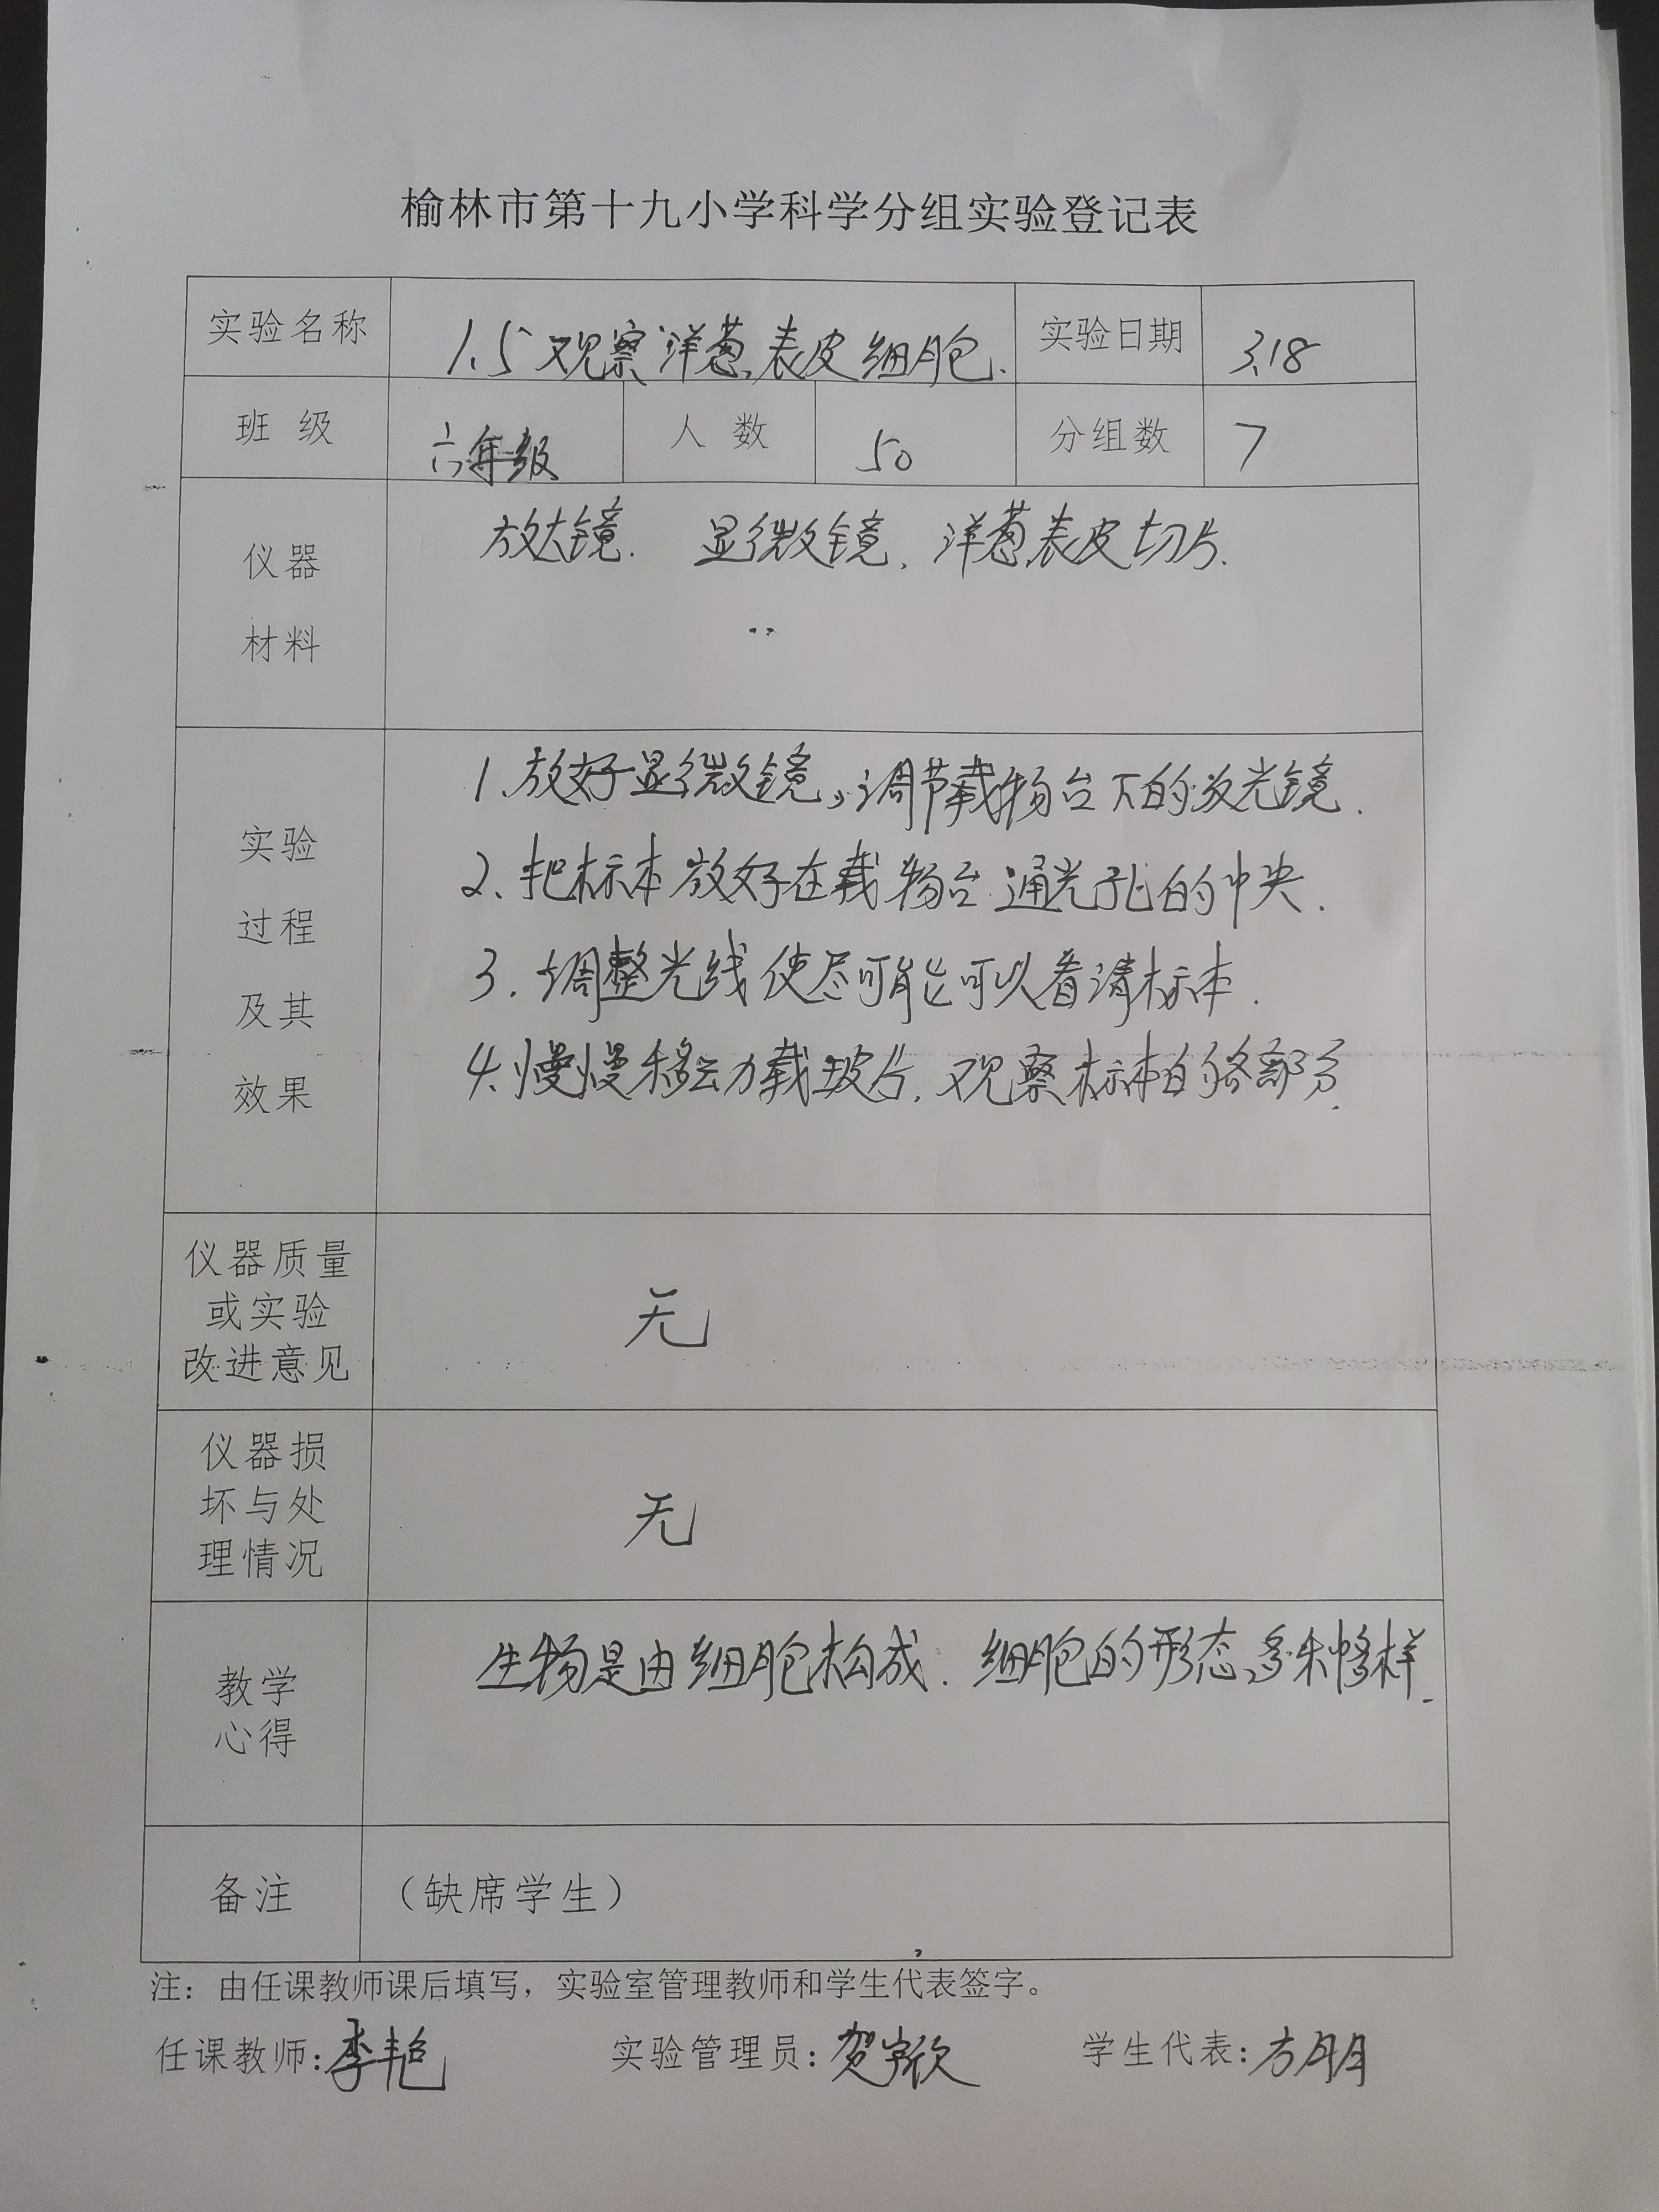 榆林市第十九小学科学分组实验登记表
实验名称 1.5 观察洋葱表皮细胞. 实验日期 3.18
班 级 六年级 人 数 50 分组数 7
仪器
材料
放大镜. 显微镜. 洋葱表皮切片.
实验
过程
及其
效果
1. 放好显微镜,调节载物台下的反光镜.
2、把标本放好在载物台通光孔的中央.
3. 调整光线使尽可能可以看清标本.
4、慢慢移动载玻片. 观察标本的各部分.
仪器质量
或实验
改进意见
无
仪器损
坏与处
理情况
无
教学
心得
生物是由细胞构成. 细胞的形态多种多样.
备注
（缺席学生）
注：由任课教师课后填写，实验室管理教师和学生代表签字。
任课教师：李艳 实验管理员：贺宇欣 学生代表：方朋